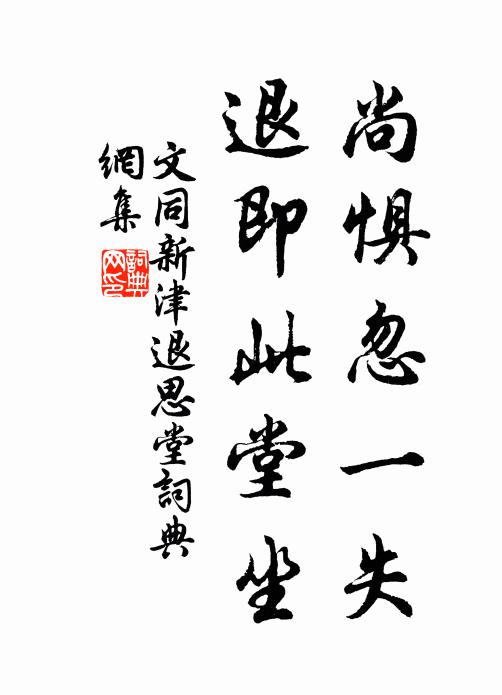 尚惧忽一失
退即此堂坐
文同新津退思堂詞典
網集
詞典
网印